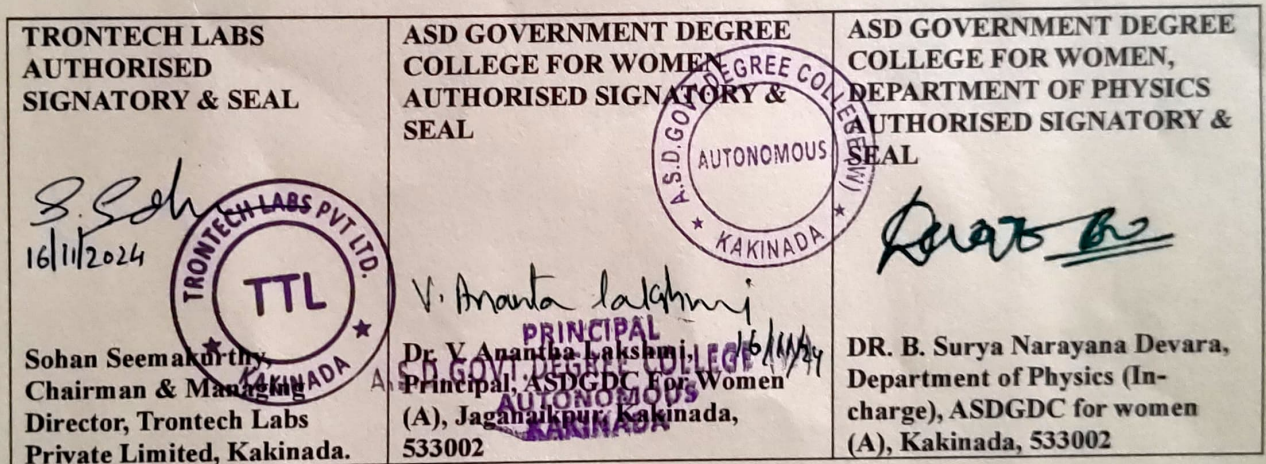 TRONTECH LABS
AUTHORISED
SIGNATORY & SEAL
S. Soh
16/11/2024
TRONTECH LABS PVT LTD.
TTL
KAKINADA
Sohan Seemakurthy,
Chairman & Managing
Director, Trontech Labs
Private Limited, Kakinada.
ASD GOVERNMENT DEGREE
COLLEGE FOR WOMEN
AUTHORISED SIGNATORY &
SEAL
A.S.D.GOVT.DEGREE COLLEGE(W)
AUTONOMOUS
KAKINADA
V. Ananta lakshmi
16/11/24
PRINCIPAL
A.S.D GOVT. DEGREE COLLEGE
AUTONOMOUS
KAKINADA
Dr. V. Anantha Lakshmi,
Principal, ASDGDC For Women
(A), Jaganaikpur, Kakinada,
533002
ASD GOVERNMENT DEGREE
COLLEGE FOR WOMEN,
DEPARTMENT OF PHYSICS
AUTHORISED SIGNATORY &
SEAL
DR. B. Surya Narayana Devara,
Department of Physics (In-
charge), ASDGDC for women
(A), Kakinada, 533002